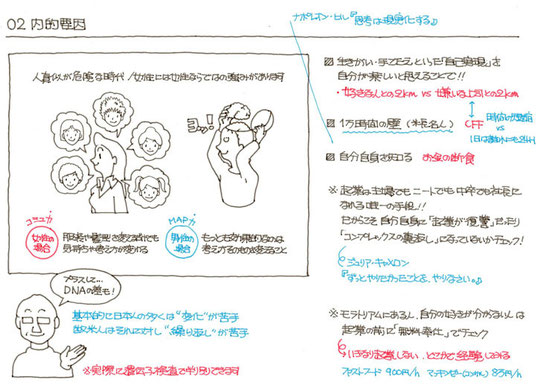 02 内的要因
人真似が危険な時代/女性には女性ならではの強みがあります
ヨッ!
コミュ力
女性の場合
服装や髪型を変えるだけでも
気持ちや考え方が変わる
MAP力
男性の場合
もっとも効果的なのは
考え方そのものを変えること
プラスして…
DNAの差も!
基本的に日本人の多くは"変化"が苦手
欧米人はそれに対し"繰り返し"が苦手
※実際に遺伝子検査で判別できます
ナポレオン・ヒル『思考は現実化する』
生きがい・手ごたえといった「自己実現」を
自分が楽しいと思えることで!!
・好きな人との2km vs 嫌いな上司との2km
1万時間の壁(才能なし)
CFF
vs
1日は誰にでも24H
自分自身を知る お金の断食
※起業は主婦でもニートでも中卒でも社長に
なれる唯一の手段!!
だからこそ自分自身に「起業が"復讐"」だったり
「コンプレックスの裏返し」になっていないかチェック!
ジュリア・キャメロン
『ずっとやりたかったことを、やりなさい。』
※モラトリアムにあるし、自分のやる気が分からない人は
起業の前に「無料奉仕」でチェック
いきなり起業しない、どこかで経験してみる
ファストフード 900円/h